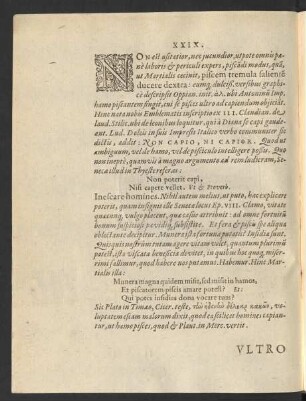 XXIX.
NON est usitatior, nec jucundior, utpote omnis pæ-
nè laboris & periculi expers, piscandi modus, quã,
ut Martialis cecinit, piscem tremula salientẽ
ducere dextra: eumq; dulciss. versibus graphi-
cè descripsit Oppian. init. ubi Antoninũ Imp.
hamo piscantem fingit, cui se pisces ultro ad capiendum objiciãt.
Hinc natum hoc Emblema
laud. Stilic. ubi de leonibus loquitur, qui à Diana se capi gaude-
ant. Lud. Dolcis in suis Impresis Italico verbo ceu
dictis, addit: NON CAPIO, NI CAPIOR. Quod ut
ambiguum, vel de hamo, vel de pisciculo intelligere possis. Quo
non ineptè, quamvis à magno argumento ad rem ludicram, Se-
necæ illud in Thyeste referas:
Non poterit capi,
Nisi capere vellet. Et & Proverb.
Inescare homines. Nihil autem melius, ac puto, hæc explicare
poterit, quàm insignis ille Senecæ locus Ep. VIII. Clamo, vitate
quæcunq; vulgo placent, quæ casus attribuit: ad omne fortuitũ
bonum suspiciosi pavidiq; subsistite. Et fera & piscis spe aliqua
oblectante decipitur. Munera ista fortunæ putatis? Insidiæ sunt.
Quisquis nostrûm tutam agere vitam volet, quantum plurimũ
potest, ista viscata beneficia devitet, in quibus hoc quoq; miser-
rimi fallimur, quod habere nos putamus. Habemur. Hinc Mar-
tialis illa:
Munera magna quidem misit, sed misit in hamo,
Et piscatorem piscis amare potest? Et:
Qui potes insidias dona vocare tuas?
Sic Plato in Timæo, Cicer. teste, vo-
luptatem escam malorum dixit, quod ea scilicet homines capian-
tur, ut hamo pisces, quod & Plaut. in Miro. vertit.
VLTRO